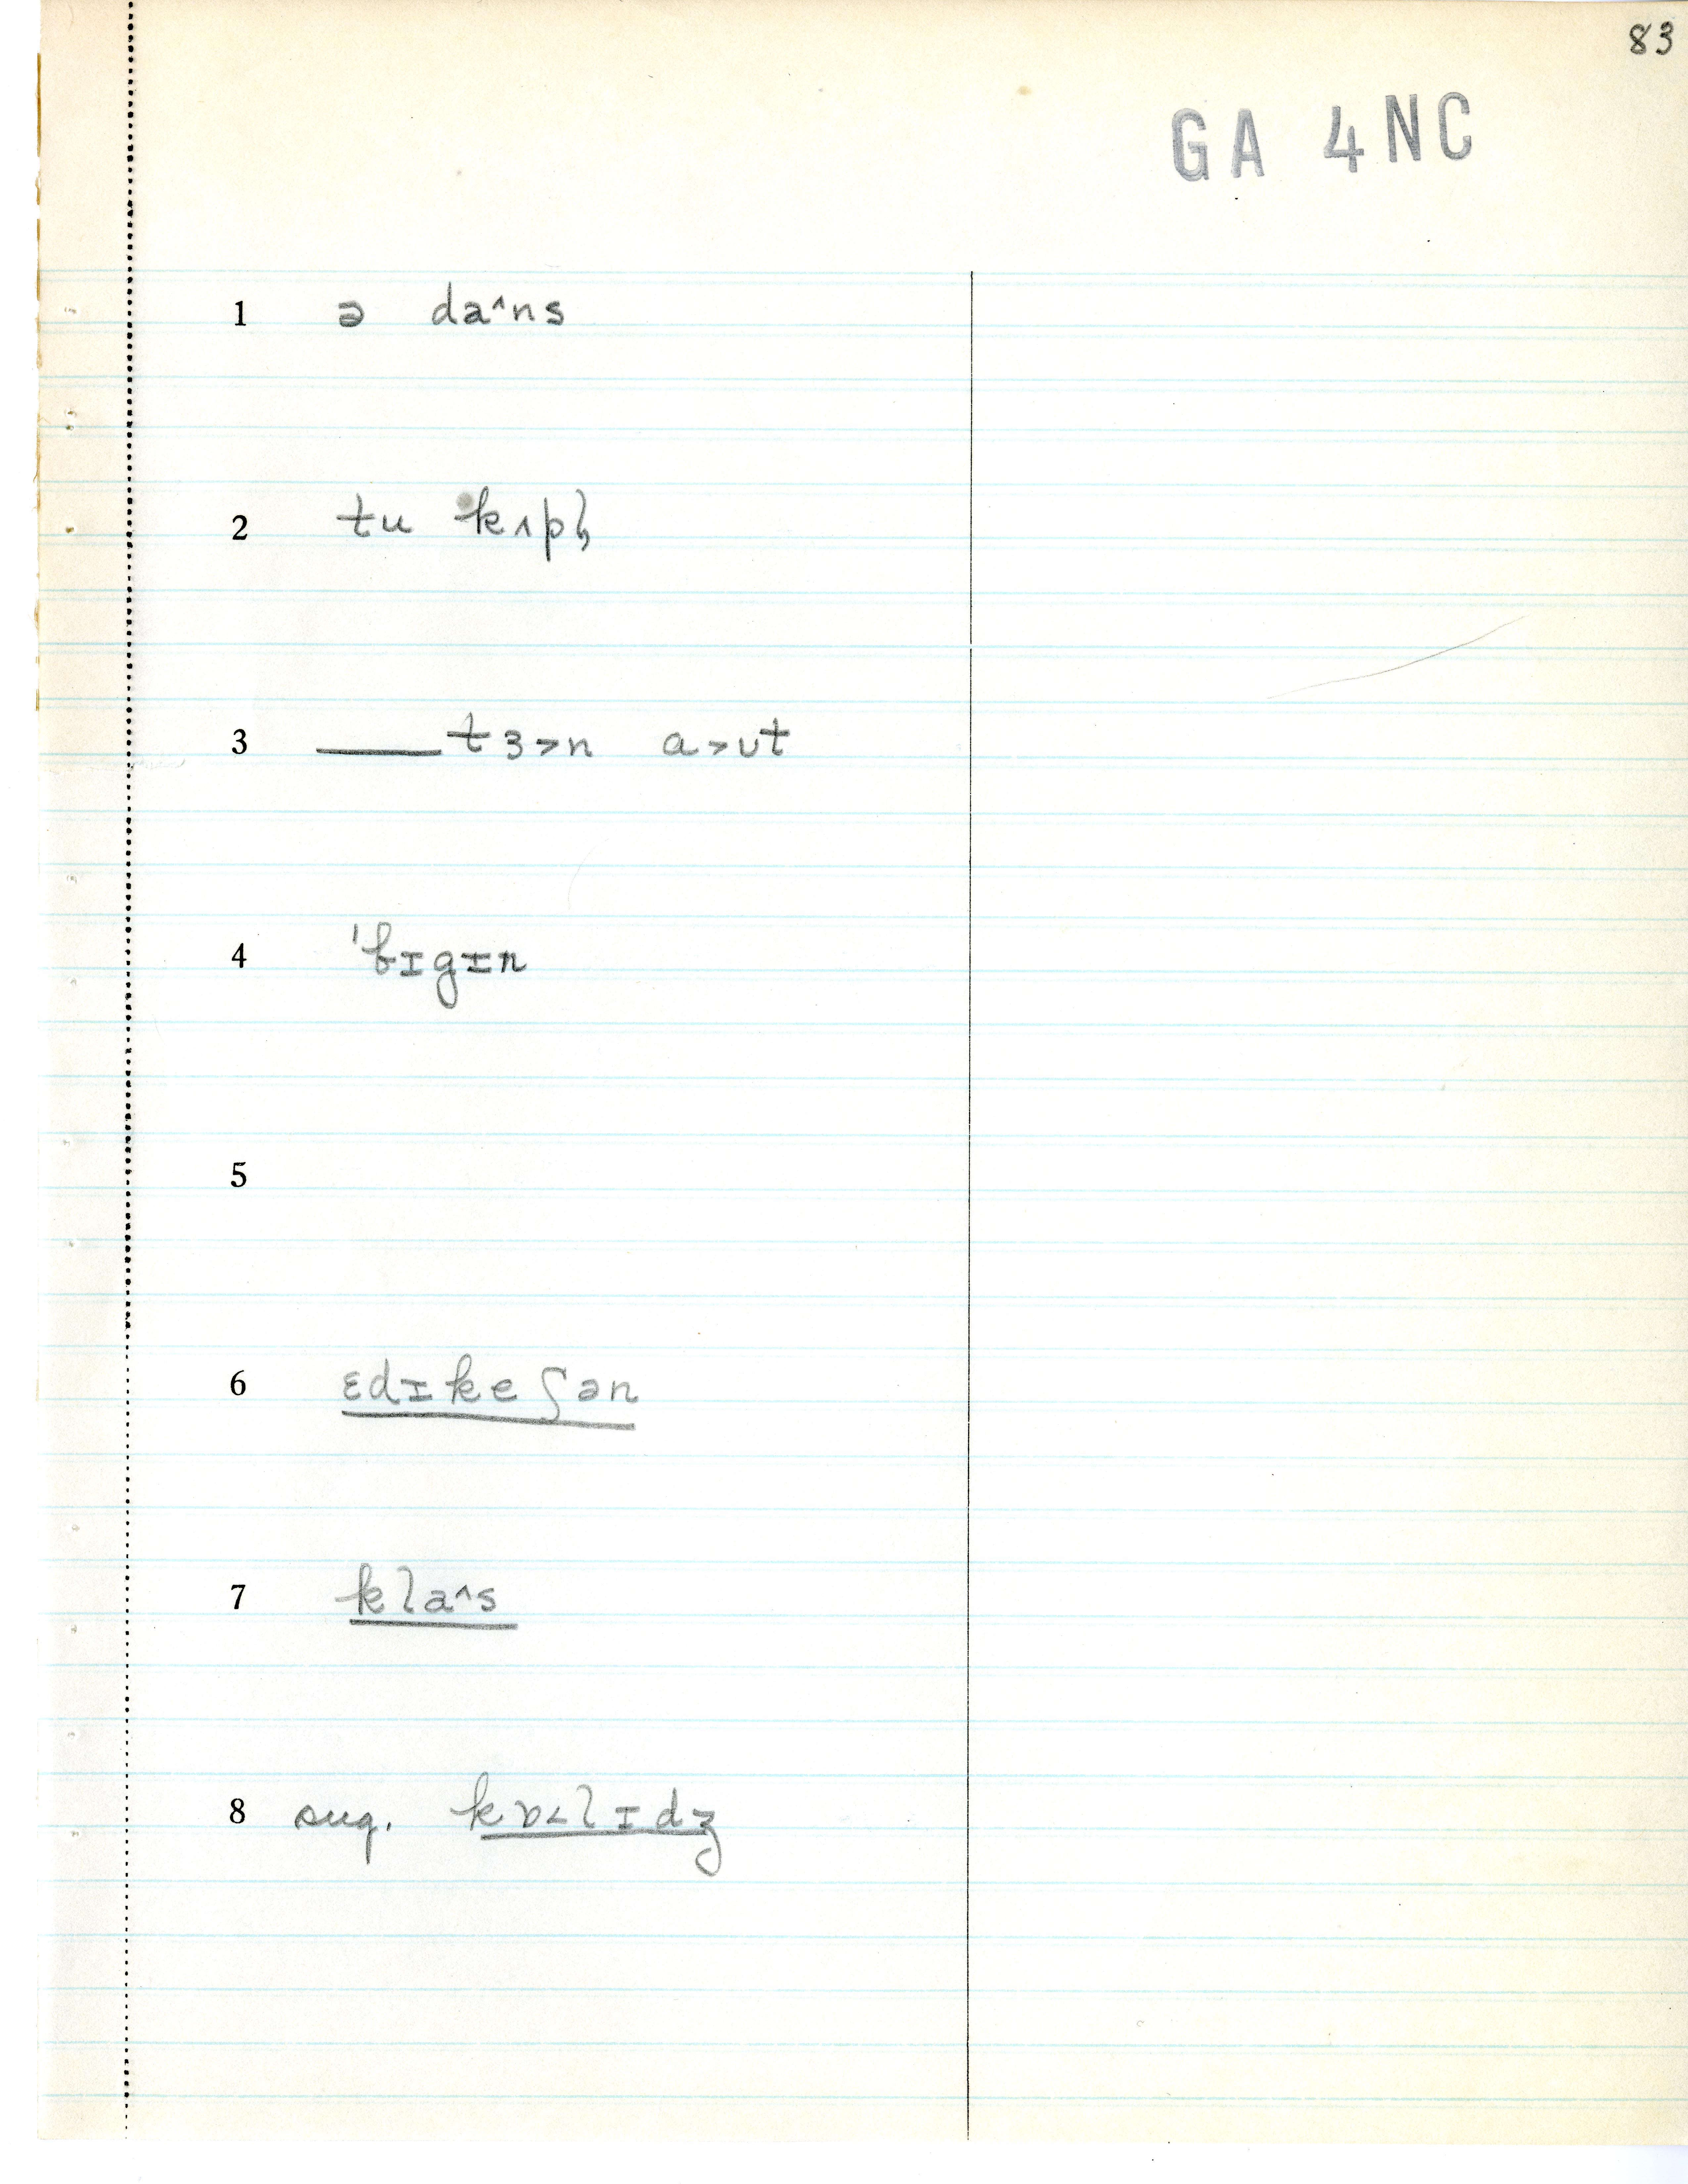 83
GA 4NC
1 ə da^ns
2 tu kʌpl̩
3 ___tɜ>n ɑ>ʊt
4 'bɪgɪn
5
6 ɛdɪkeʃən
7 kla^s
8 sug. kɒ<lɪdʒ